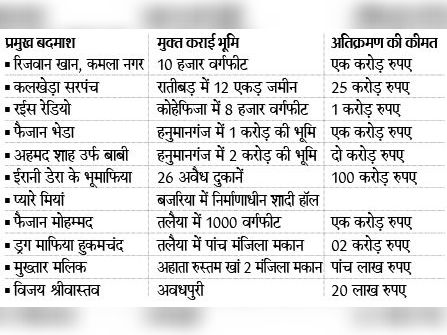 प्रमुख बदमाश मुक्त कराई भूमि अतिक्रमण की कीमत
▪ रिजवान खान, कमला नगर 10 हजार वर्गफीट एक करोड़ रुपए
▪ कलखेड़ा सरपंच रातीबड़ में 12 एकड़ जमीन 25 करोड़ रुपए
▪ रईस रेडियो कोहेफिजा में 8 हजार वर्गफीट 1 करोड़ रुपए
▪ फैजान भेडा हनुमानगंज में 1 करोड़ की भूमि एक करोड़ रुपए
▪ अहमद शाह उर्फ बाबी हनुमानगंज में 2 करोड़ की भूमि दो करोड़ रुपए
▪ ईरानी डेरा के भूमाफिया 26 अवैध दुकानें 100 करोड़ रुपए
▪ प्यारे मियां बजरिया में निर्माणाधीन शादी हॉल
▪ फैजान मोहम्मद तलैया में 1000 वर्गफीट एक करोड़ रुपए
▪ ड्रग माफिया हुकमचंद तलैया में पांच मंजिला मकान 02 करोड़ रुपए
▪ मुख्तार मलिक अहाता रुस्तम खां 2 मंजिला मकान पांच लाख रुपए
▪ विजय श्रीवास्तव अवधपुरी 20 लाख रुपए